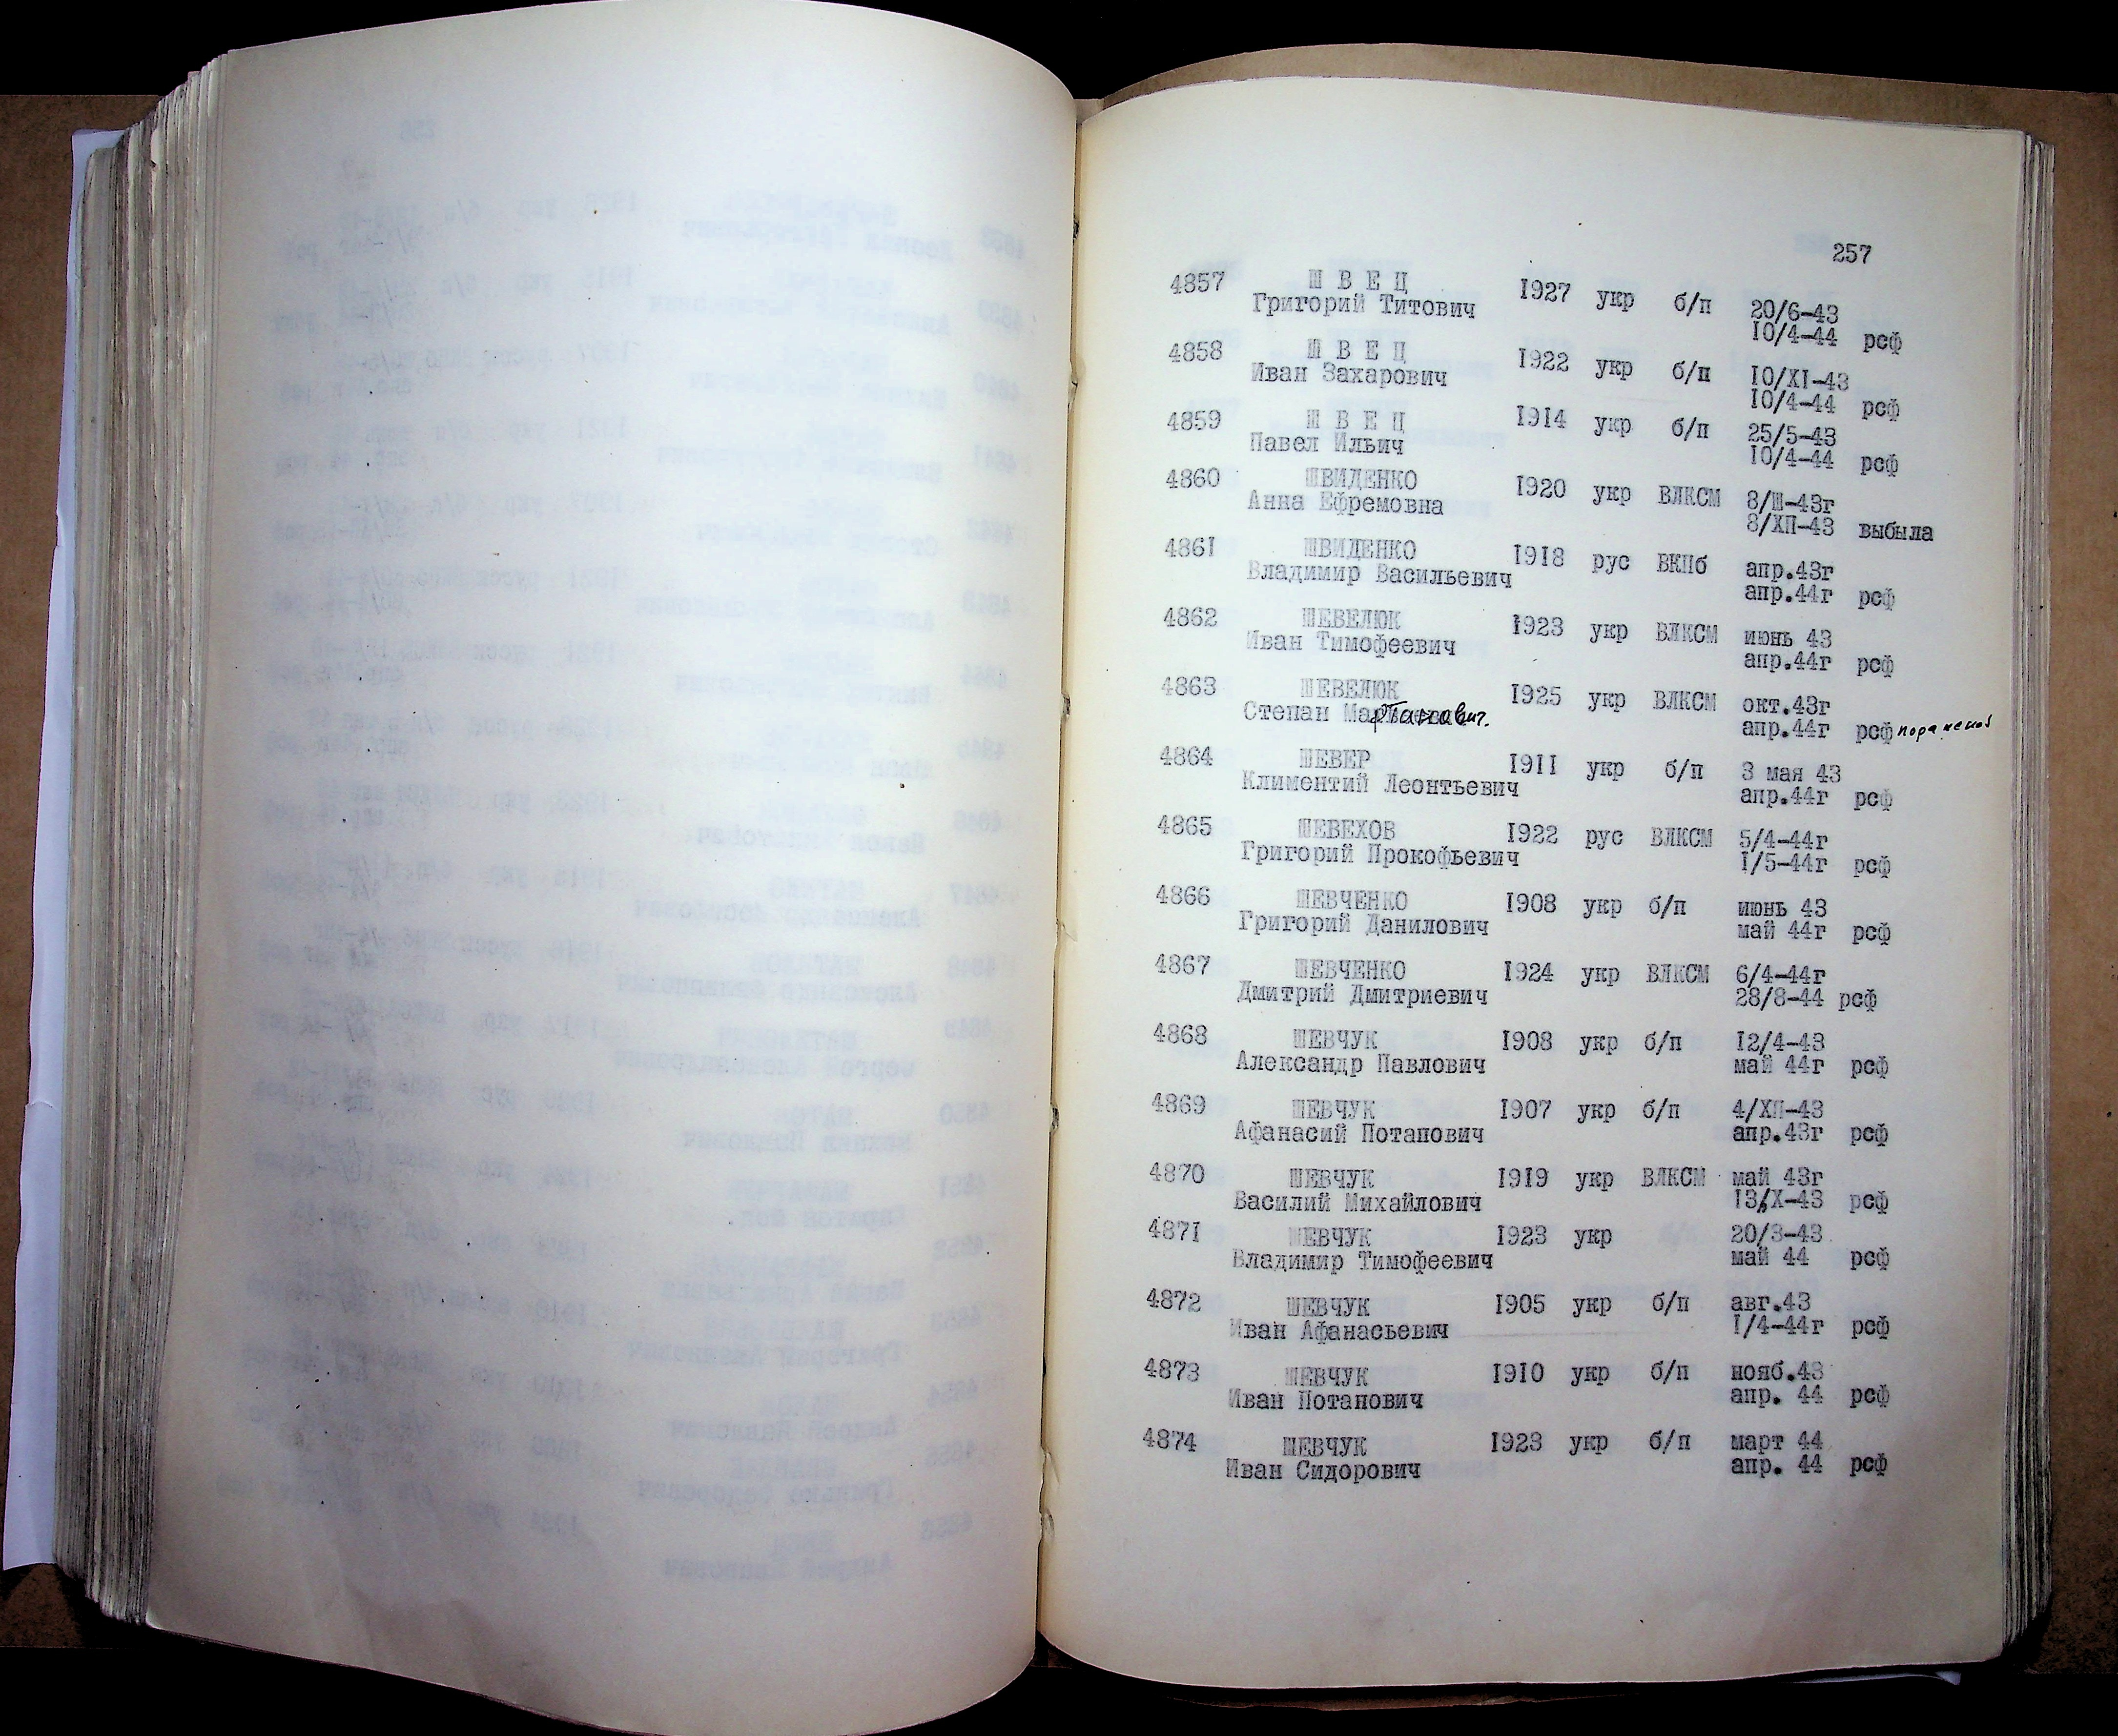 257
4857 Ш В Е Ц 1927 укр б/п 20/6-43
Григорий Титович 10/4-44 рсф
4858 Ш В Е Ц 1922 укр б/п 10/XI-43
Иван Захарович 10/4-44 рсф
4859 Ш В Е Ц 1914 укр б/п 25/5-43
Павел Ильич 10/4-44 рсф
4860 ШВИДЕНКО 1920 укр ВЛКСМ 8/Ш-43г
Анна Ефремовна 8/ХП-43 выбыла
4861 ШВИДЕНКО 1918 рус ВКПб апр.43г
Владимир Васильевич апр.44г рсф
4862 ШЕВЕЛЮК 1923 укр ВЛКСМ июнь 43
Иван Тимофеевич апр.44г рсф
4863 ШЕВЕЛЮК 1925 укр ВЛКСМ окт.43г
Степан апр.44г рсф
4864 ШЕВЕР 1911 укр б/п 3 мая 43
Климентий Леонтьевич апр.44г рсф
4865 ШЕВЕХОВ 1922 рус ВЛКСМ 5/4-44г
Григорий Прокофьевич 1/5-44г рсф
4866 ШЕВЧЕНКО 1908 укр б/п июнь 43
Григорий Данилович май 44г рсф
4867 ШЕВЧЕНКО 1924 укр ВЛКСМ 6/4-44г
Дмитрий Дмитриевич 28/8-44 рсф
4868 ШЕВЧУК 1908 укр б/п 12/4-43
Александр Павлович май 44г рсф
4869 ШЕВЧУК 1907 укр б/п 4/ХП-43
Афанасий Потапович апр.43г рсф
4870 ШЕВЧУК 1919 укр ВЛКСМ май 43г
Василий Михайлович 13/Х-43 рсф
4871 ШЕВЧУК 1923 укр 20/3-43
Владимир Тимофеевич май 44 рсф
4872 ШЕВЧУК 1905 укр б/п авг.43
Иван Афанасьевич 1/4-44г рсф
4873 ШЕВЧУК 1910 укр б/п нояб.43
Иван Потапович апр. 44 рсф
4874 ШЕВЧУК 1923 укр б/п март 44
Иван Сидорович апр. 44 рсф